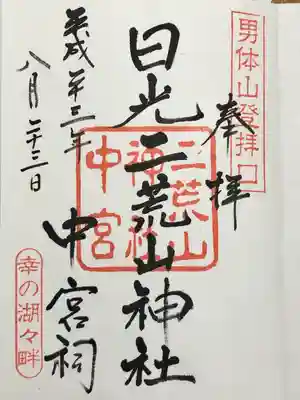 男体山登拝口
奉拝
日光二荒山神社
二荒山
神社
中宮
中宮祠
平成廿三年
八月二十三日
幸の湖々畔